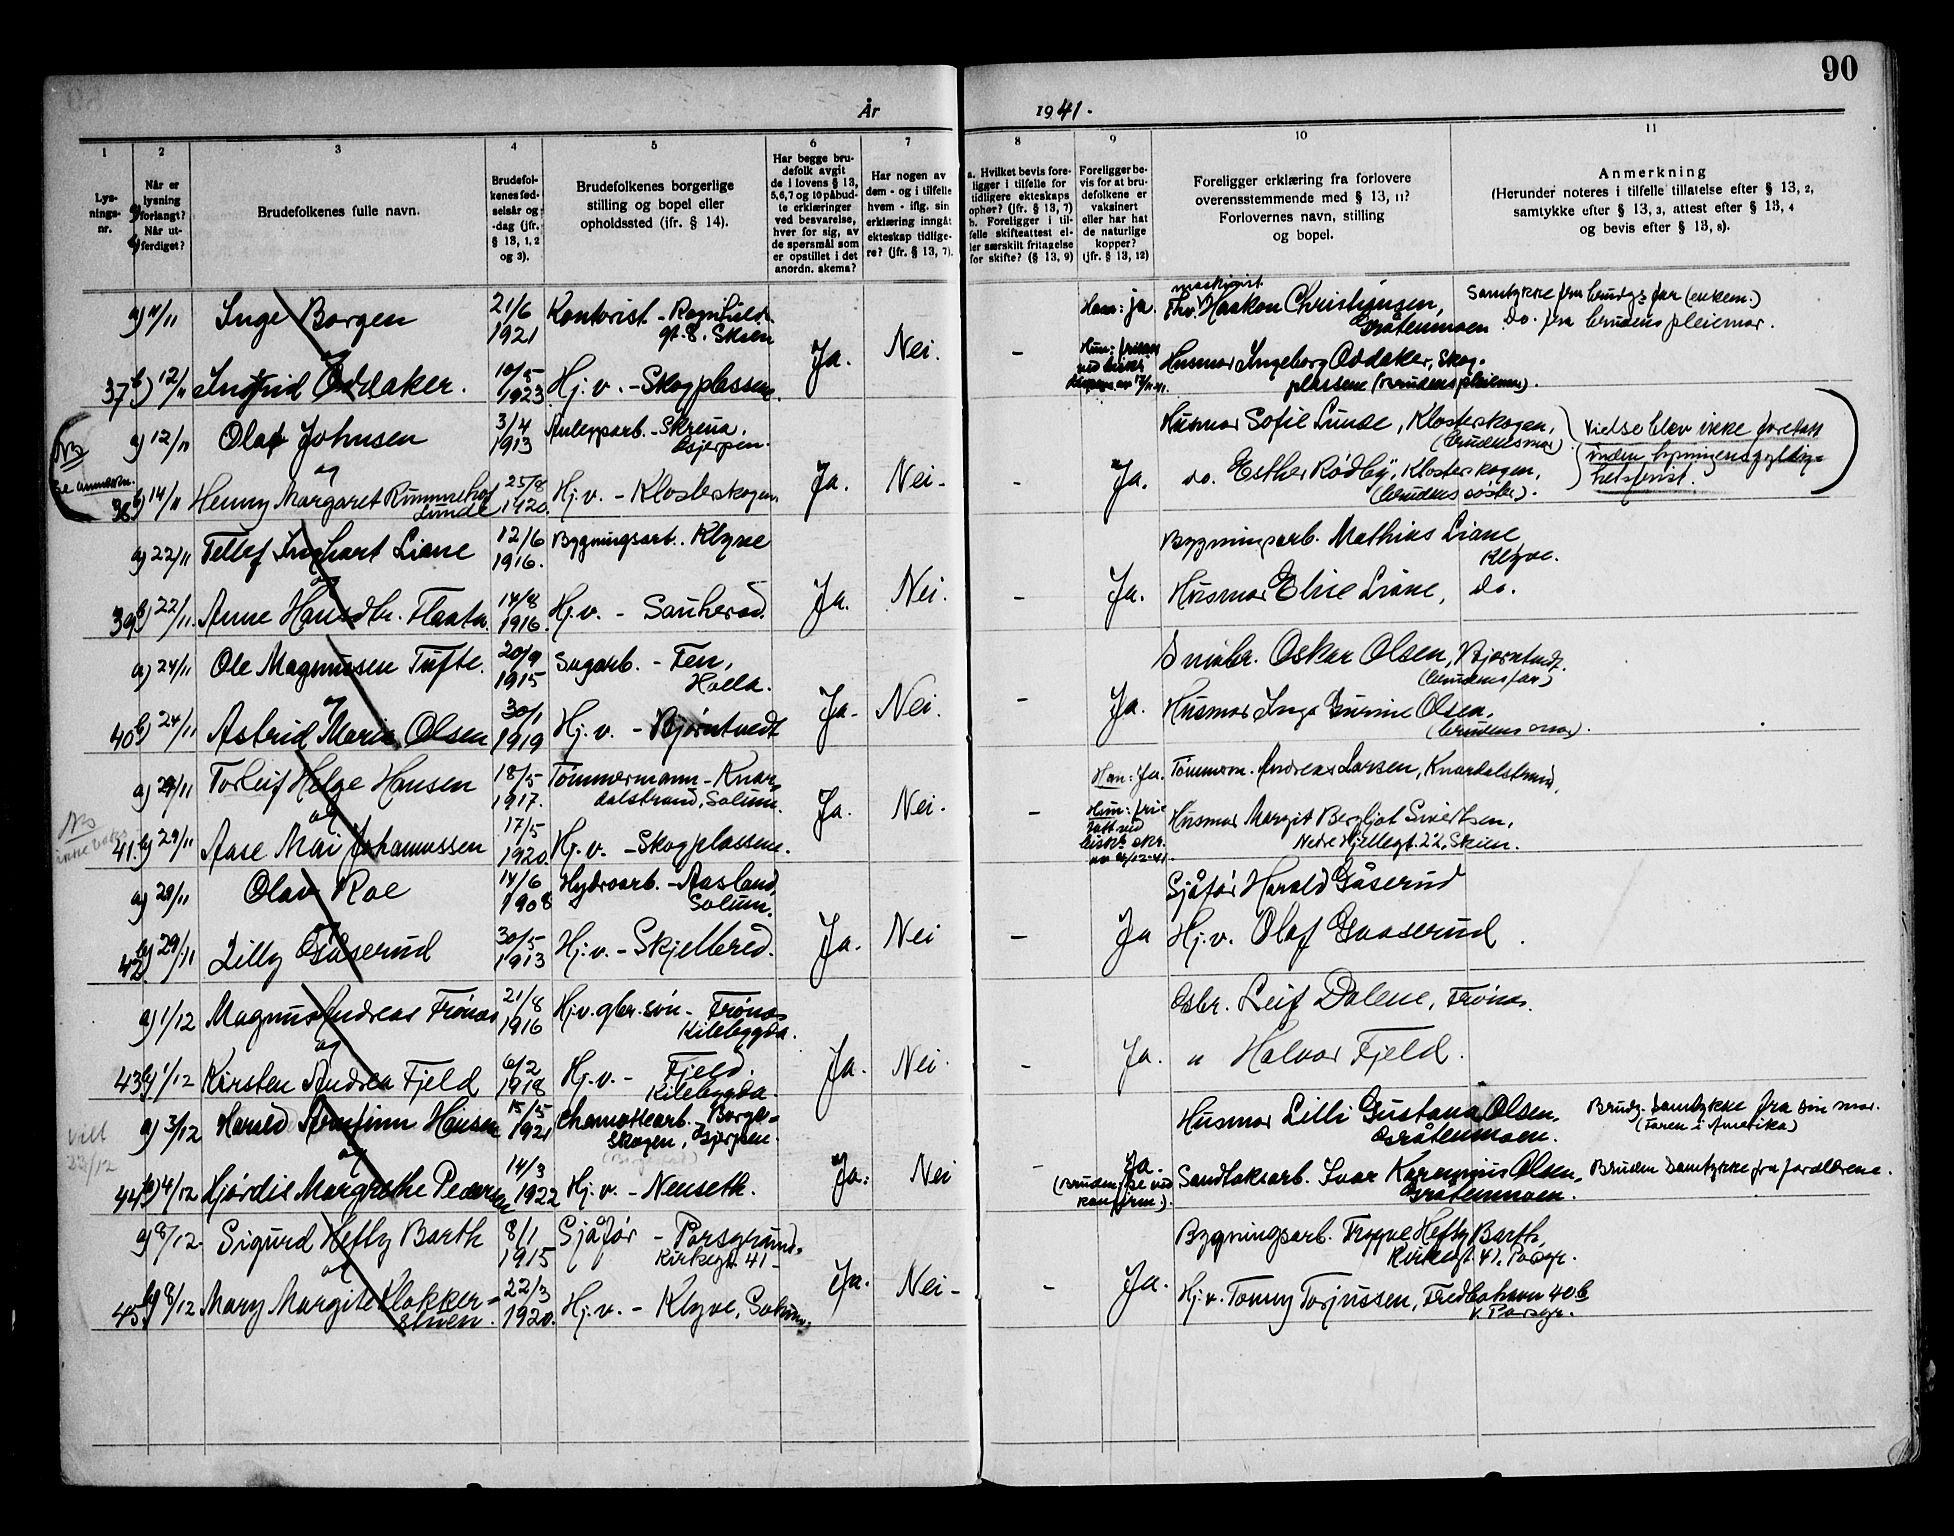 90
År 1941.
1 2 3 4 5 6 7 8 9 10 11
Lys-
nings-
nr.
Når er
lysning
forlangt?
Når ut-
ferdiget?
Brudefolkenes fulle navn.
Brudefol-
kenes fød-
selsår og
-dag (jfr.
§ 13, 1, 2
og 3).
Brudefolkenes borgerlige
stilling og bopel eller
opholdssted (jfr. § 14).
Har begge bru-
defolk avgit
de i lovens § 13,
5,6,7 og 10 påbud-
te erklæringer
ved besvarelse,
hver for sig, av
de spørsmål som
er opstillet i det
anordn. skema?
Har nogen av
dem - og i tilfelle
hvem - iflg. sin
erklæring inngått
ekteskap tidlige-
re? (jfr. § 13, 7).
a. Hvilket bevis fore-
ligger i tilfelle for
tidligere ekteskaps
ophør? (jfr. § 13, 7)
b. Foreligger i til-
felle skifteattest el-
ler særskilt fritagelse
for skifte? (§ 13, 9)
Foreligger be-
vis for at bru-
defolkene er
vaksinert
eller har hat
de naturlige
kopper?
(jfr. § 13, 12)
Foreligger erklæring fra forlovere
overensstemmende med § 13, 11?
Forlovernes navn, stilling
og bopel.
Anmerkning
(Herunder noteres i tilfelle tillatelse efter § 13, 2,
samtykke efter § 13, 3, attest efter § 13, 4
og bevis efter § 13, 8).
a) 11/11 Inge Borgen 21/6 1921 Kontorist - Ragnhilds
gt. 8. Skien Han: ja. maskinist Haakon Christiansen,
Gråtenmoen Samtykke fra brudgs far (enkem.)
Do. fra brudens pleiemor.
37 b) 12/11 Ingrid Oddaker. 10/5 1923 Hj.v. - Skogplassene. Ja. Nei. - Husmor Ingeborg Oddaker, Skog-
plassene (brudens pleiemor).
NB
se anmerkn.
a) 12/11 Olaf Johnsen 3/4 1913 Anleggsarb. - Skreua,
Gjerpen. Husmor Sofie Lunde, Klosterskogen,
(brudens mor) Vielse blev ikke foretatt
innen lysningens gyldig-
hetsfrist.
og
38 b) 14/11 Henny Margaret Rummelhof
Lunde 25/8 1920. Hj.v. - Klosterskogen. Ja. Nei - - Ja. do. Esther Rødby, Klosterskogen,
(brudens søster).
a) 22/11 Tellef Inghart Liane 12/6 1916. Bygningsarb. Klyve Bygningsarb. Mathias Liane
Klyve.
og
39 b) 22/11. Anne Hansdtr. Flaata 14/8 1916. Hj.v. - Sauherad. Ja. Nei. - Ja. Husmor Elise Liane, do.
a) 24/11 Ole Magnussen Tufte. 20/9 1915 Sagarb. - Fen,
Holla. Småbr. Oskar Olsen, Bjørntvedt.
(brudens far)
og
40 b) 24/11 Astrid Marie Olsen 30/1 1919 Hj.v. - Bjørntvedt Ja - Nei. - Ja. Husmor Inga Gurine Olsen.
(brudens mor).
NB
a) 29/11 Torleif Helge Hansen 18/5 1917. Tømmermann - Knar-
dalstrand, Solum. Han: Ja. Tømmerm. Andreas Larsen, Knardalstrand,
og
41. b) 29/11 Aase Mai Johannessen 17/5 1920. Hj.v. - Skogplassene. Ja. Nei. - Hun: fri-
tatt ved
Husmor Margit Bergljot Sivertsen,
Nedre Hjellegt. 22, Skien.
a) 29/11 Olav Roe 14/6 1908 Hydroarb. - Aasland,
Solum. Sjåfør Harald Gåserud
42. b) 29/11 Lilly Gåserud 30/5 1913 Hj.v. - Skjelbred. Ja. Nei - Ja Hj.v. Olaf Gaaserud.
a) 1/12 Magnus Andreas Frønes 21/8 1916 Hj.v. gbr.søn - Frønes
Kilebygda. Gbr. Leif Dalene, Frønes.
og
43 b) 1/12 Kirsten Andrea Fjeld 6/2 1918 Hj.v. - Fjeld.
Kilebygda. Ja. Nei - Ja. " Halvor Fjeld.
22/12
a) 3/12 Harald Arnfinn Hansen 15/5 1921 Chamottearb. Borge-
skogen, Gjerpen. Husmor Lilli Gustava Olsen,
Gråtenmoen. Brudg. samtykke fra sin mor.
(Faren i Amerika)
og
44 b) 4/12 Hjørdis Margrethe Pedersen 14/3 1922 Hj.v. - Nenseth. Ja. Nei - Ja.
(Bruden, se ved
konfirm.). Sandtaksarb. Ivar Karenius Olsen,
Gråtenmoen. Bruden samtykke fra foreldrene.
a) 8/12 - Sigurd Hefty Barth 8/1 1915 Sjåfør - Porsgrunn.
Kirkegt. 41 - Bygningsarb. Trygve Hefty Barth,
Kirkegt. 41. Porsgr.
og
45 b) 8/12 Mary Margite Klokker-
stuen. 22/3 1920. Hj.v. - Klyve, Solum. Ja. Nei - - Ja. Hj.v. Tommy Torjussen, Fredbohavn 40b
v. Porsgr.